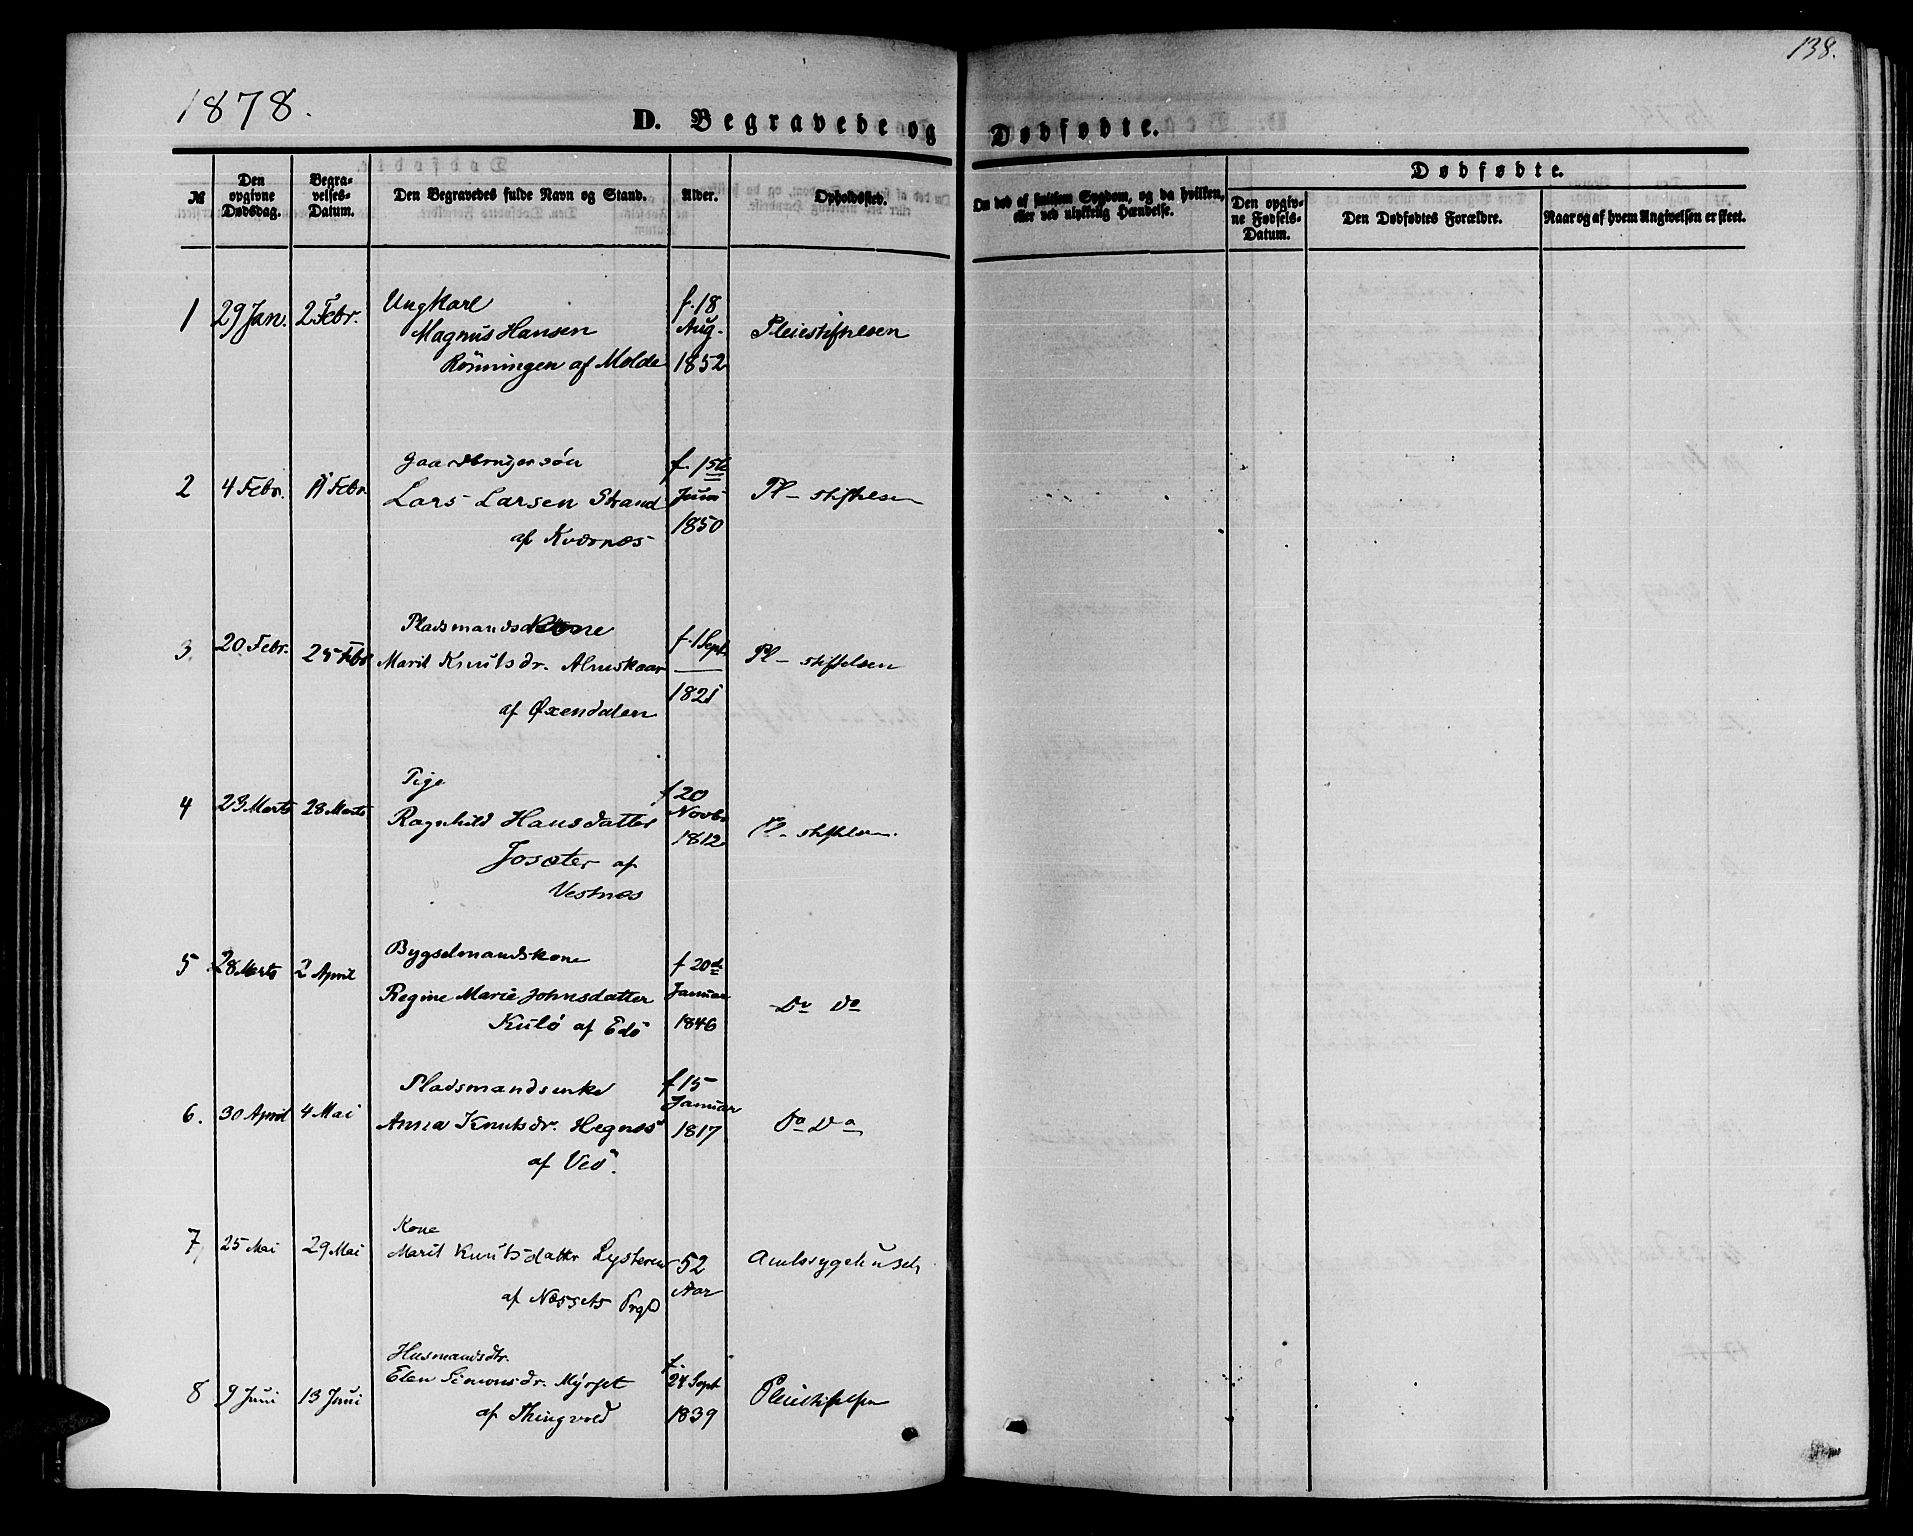 138.
1878.
D. Begravede og Dødfødte.
№
Den opgivne Dødsdag.
Begravelses-Datum.
Den Begravedes fulde Navn og Stand.
Alder.
Opholdssted.
Om død af smitsom Sygdom, og da hvilken, eller ved ulykkelig Hændelse.
Dødfødte.
Den opgivne Fødsels-Datum.
Den Dødfødtes Forældre.
Naar og af hvem Angivelsen er skeet.
1 29 Jan. 2 Febr. Ungkarl f. 18
Magnus Hansen Aug. Pleiestiftelsen
Rönningen af Molde 1852
2 4 Febr. 11 Febr Gaardbrugersön f. 15de
Lars Larsen Strand Juni Pl- stiftelsen
af Kværnæs 1850
3. 20 Febr. 25 Febr Pladsmandskone f. 1 Sept.
Marit Knutsdr. Almskaar Pl- stiftelsen
af Øxendalen 1821
4 23 Marts 28 Marts Pige f 20
Ragnhild Hansdatter Novbr 1812 Pl- stiftelsen.
Josæter af
Vestnæs
5 28 Marts 2 April Bygselmandskone f 20de
Regine Marie Johnsdatter Januar Do Do
Kulö af Edö 1846
6. 30 April 4 Mai Pladsmandsenke f 15 Januar
Anna Knutsdr. Hegnæs 1817 Do Do
af Veö.
7, 25 Mai 29 Mai Kone
Marit Knutsdattr 52 Amtssygehuset
af Næssets Prgd Aar
8 9 Juni 13 Juni Husmandsdtr. f.
Elen Simonsdr. Myrset 24 Sept Pleiestiftelsen
af Thingvold 1839